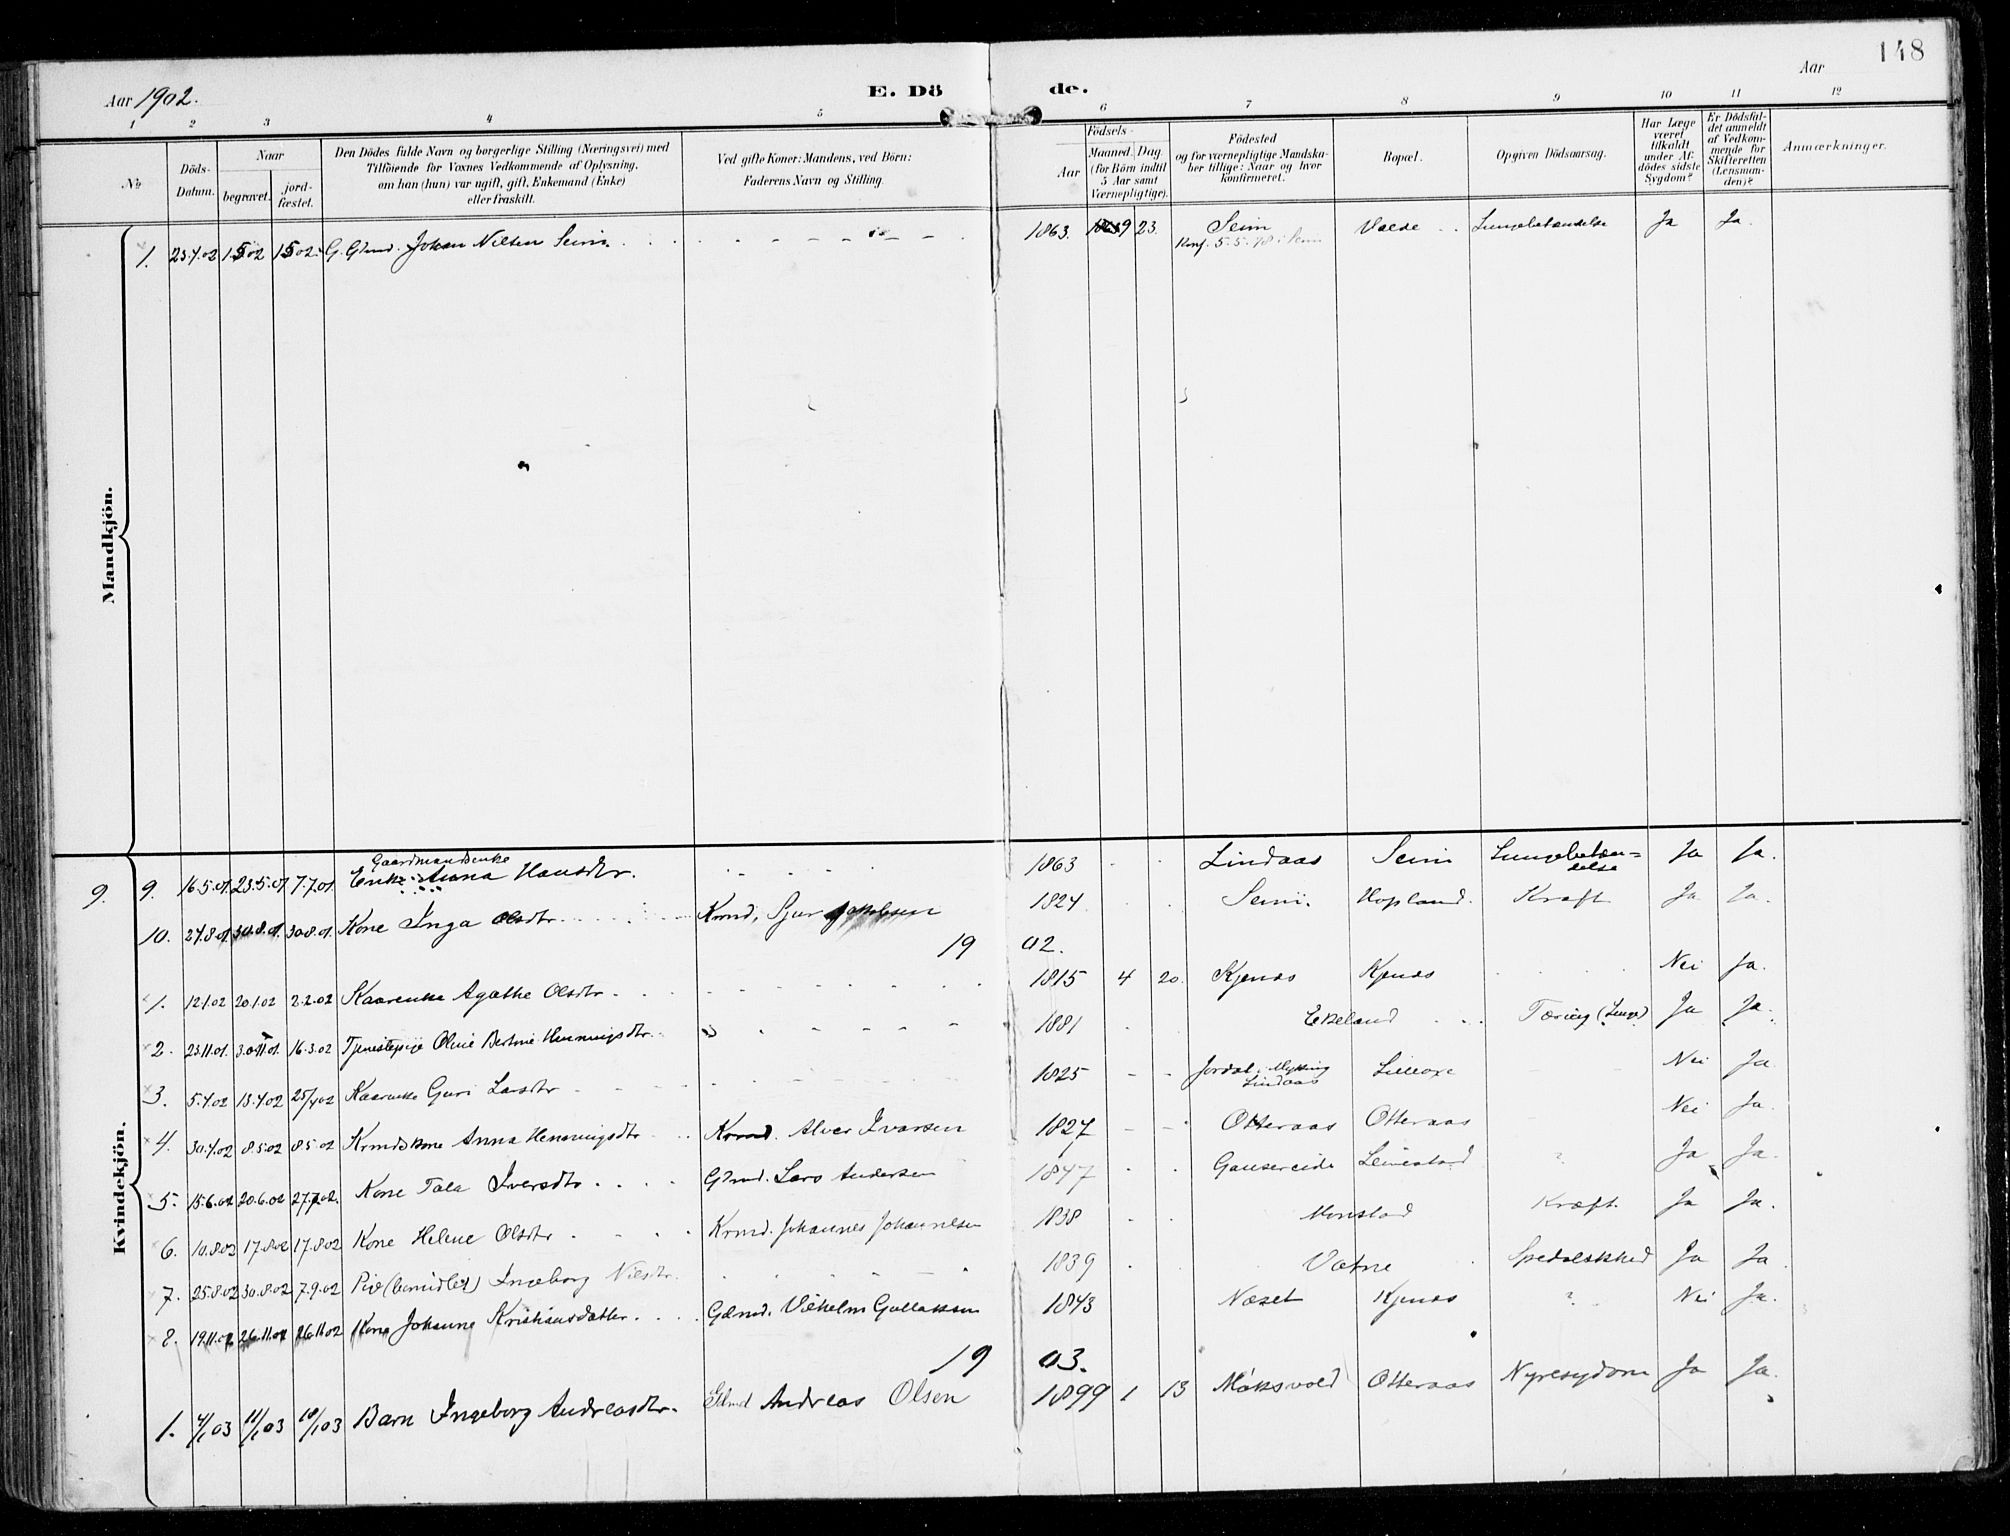 148
Aar 1902. E. Dö de. Aar
1 2 3 4 5 6 7 8 9 10 11 12
No
Döds-Datum.
Naar
begravet.
jord-fæstet.
Den Dödes fulde Navn og borgerlige Stilling (Næringsvei) med
Tilföiende for Voxnes Vedkommende af Oplysning,
om han (hun) var ugift, gift, Enkemand (Enke)
eller fraskilt.
Ved gifte Koner: Mandens, ved Börn:
Faderens Navn og Stilling.
Födsels-
Aar
Maaned. Dag
(for Börn indtil
5 Aar samt
Værnepligtige).
Födested
og for værnepligtige Mandska-
ber tillige: Naar og hvor
konfirmeret.
Bopæl.
Opgiven Dödsaarsag.
Har Læge
været
tilkaldt
under Af-
dödes sidste
Sygdom?
Er Dödsfal-
det anmeldt
af Vedkom-
mende for
Skifteretten
(Lensman-
den)?
Anmærkninger.
Mandkjön.
1. 23.4.02 1.5.02 1.5.02 G. Gbmd. Johan Nilsen Seim 1863. 9 23. Seim Valde Lungebetændelse Ja Ja.
Konf. 5.5.78 i Seim
Kvindekjön.
Gaardmandsenke
9. 9. 16.5.01. 23.5.01 7.7.01. Enke Anna Hansdtr. 1863 Lindaas Seim Lungebetæn=
delse Ja Ja.
10. 24.8.01. 30.8.01. 30.8.01. Kone Inga Olsdtr Krmd. Sjur Jakobsen 1824 Seim. Hopland. Kræft Ja Ja.
1902.
1. 12.1.02 20.1.02 2.2.02 Kaarenke Agathe Olsdtr. 1815 4 20. Kjenes Kjenes Nei Ja.
2. 23.11.01. 30.11.01. 16.3.02 Tjenestepige Oline Bertine Henningsdtr. 1881 Ekeland Tæring (Lunge) Ja Ja.
3. 5.4.02 13.4.02 25/4 02 Kaarenke Guri Larsdtr 1825 Jordal, Mykking
Lindaas Nei Ja
4. 30.4.02 8.5.02 8.5.02 Krmdskone Anna Henningsdtr. Krmd. Alver Ivarsen 1827 Otteraas Otteraas Nei Ja.
5. 15.6.02 20.6.02 27.7.02. Kone Tala Iversdtr Gbmd. Lars Andersen 1847 ? Ja Ja.
6. 10.8.02 17.8.02 17.8.02 Kone Helene Olsdtr Krmd. Johannes Johannesen 1838 Monstad Kræft. Ja Ja.
7. 25.8.02 30.8.02 7.9.02 Pige (bemidlet) Ingeborg Nilsdtr. 1839 Vatne Spedalskhed Ja Ja
8. 19.11.02 26.11.02 26.11.02 Kone Johanne Kristiansdatter. Gbmd. Vilhelm Gullaksen 1843 Næset Kjenes ? Nei Ja.
1903.
1. 4/1 03 11/1 03 18/1 03 Barn Ingeborg Andreasdtr. Gbmd Andreas Olsen 1899 1 13 Otteraas Nyresygdom Ja Ja.